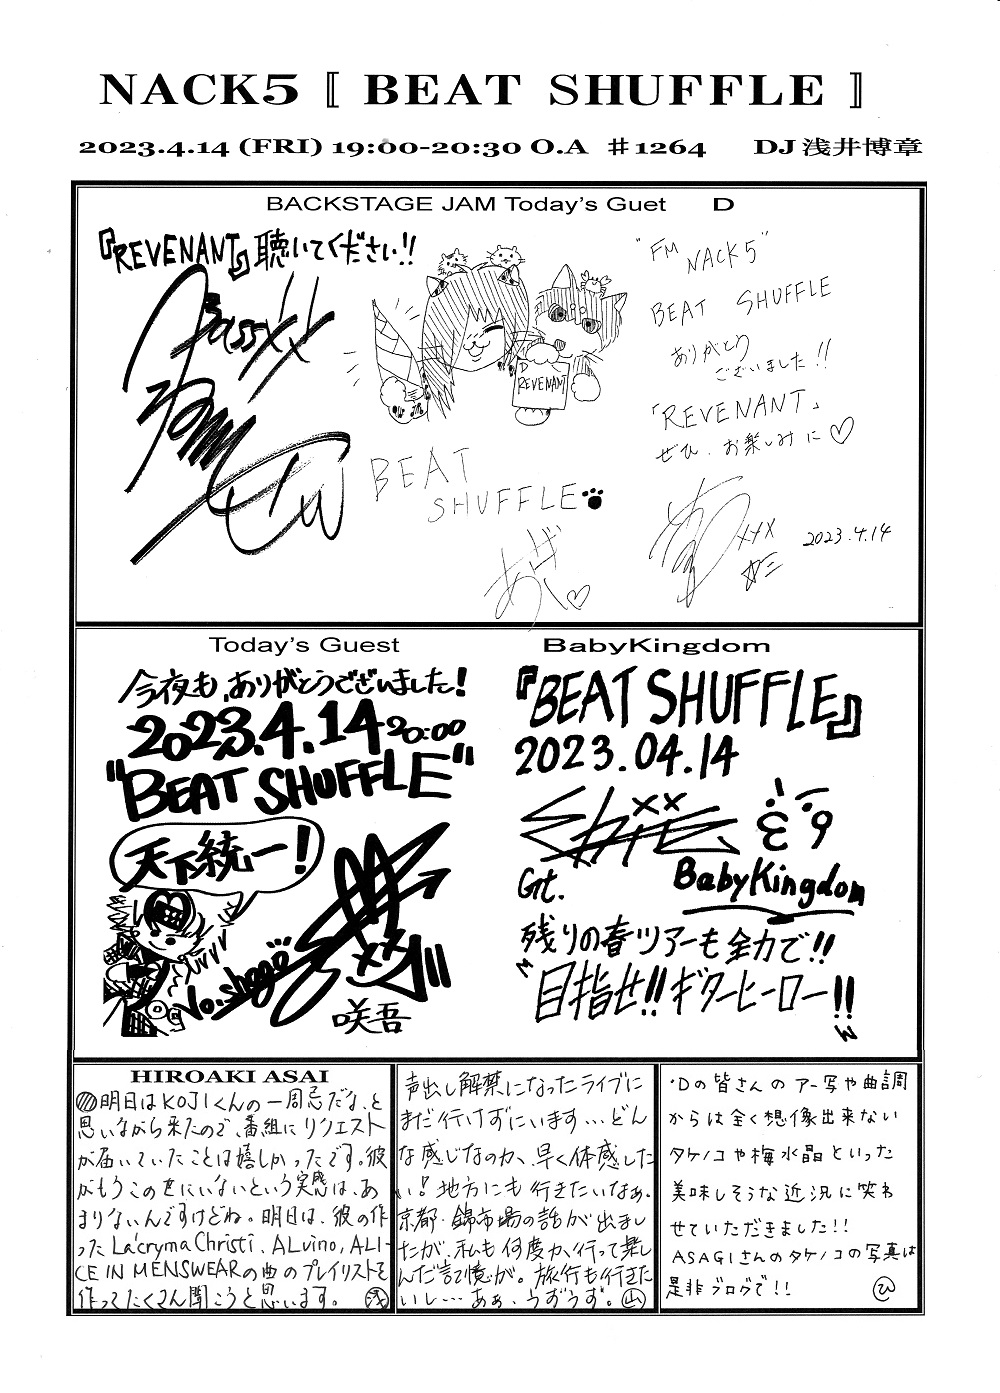 NACK5〚 BEAT SHUFFLE 〛
2023.4.14 (FRI) 19:00-20:30 O.A ♯1264 DJ 浅井博章
BACKSTAGE JAM Today's Guet D
『REVENANT』聴いてください!!
D
REVENANT
BEAT
SHUFFLE
"FM
NACK5"
BEAT SHUFFLE
ありがとう
ございました!!
「REVENANT」
ぜひ、お楽しみに♡
2023.4.14
Today's Guest BabyKingdom
今夜も、ありがとうございました!
2023.4.14 20:00
"BEAT SHUFFLE"
天下統一!
Vo.shogo
咲吾
『BEAT SHUFFLE』
2023.04.14
Gt.
BabyKingdom
残りの春ツアーも全力で!!
"目指せ!!ギターヒーロー!!"
HIROAKI ASAI
明日はKOJIくんの一周忌だな、と
思いながら来たので、番組にリクエスト
が届いていたことは嬉しかったです。彼
がもうこの世にいないという実感は、あ
まりないんですけどね。明日は、彼の作
った La'cryma Christi、ALvino, ALI-
CE IN MENSWEARの曲のプレイリストを
作ってたくさん聞こうと思います。 浅
声出し解禁になったライブに
まだ行けずにいます…どん
な感じなのか、早く体感した
い!地方にも行きたいなぁ。
京都・錦市場の話が出まし
たが、私も何度か行って楽し
んだ記憶が。旅行も行きた
いし…あぁ、うずうず。山
・Dの皆さんのアー写や曲調
からは全く想像出来ない
タケノコや梅水晶といった
美味しそうな近況に笑わ
せていただきました!!
ASAGIさんのタケノコの写真は
是非ブログで!! ひ